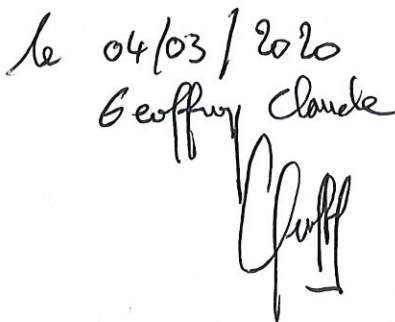 le 04/03/2020
Geoffroy Claude